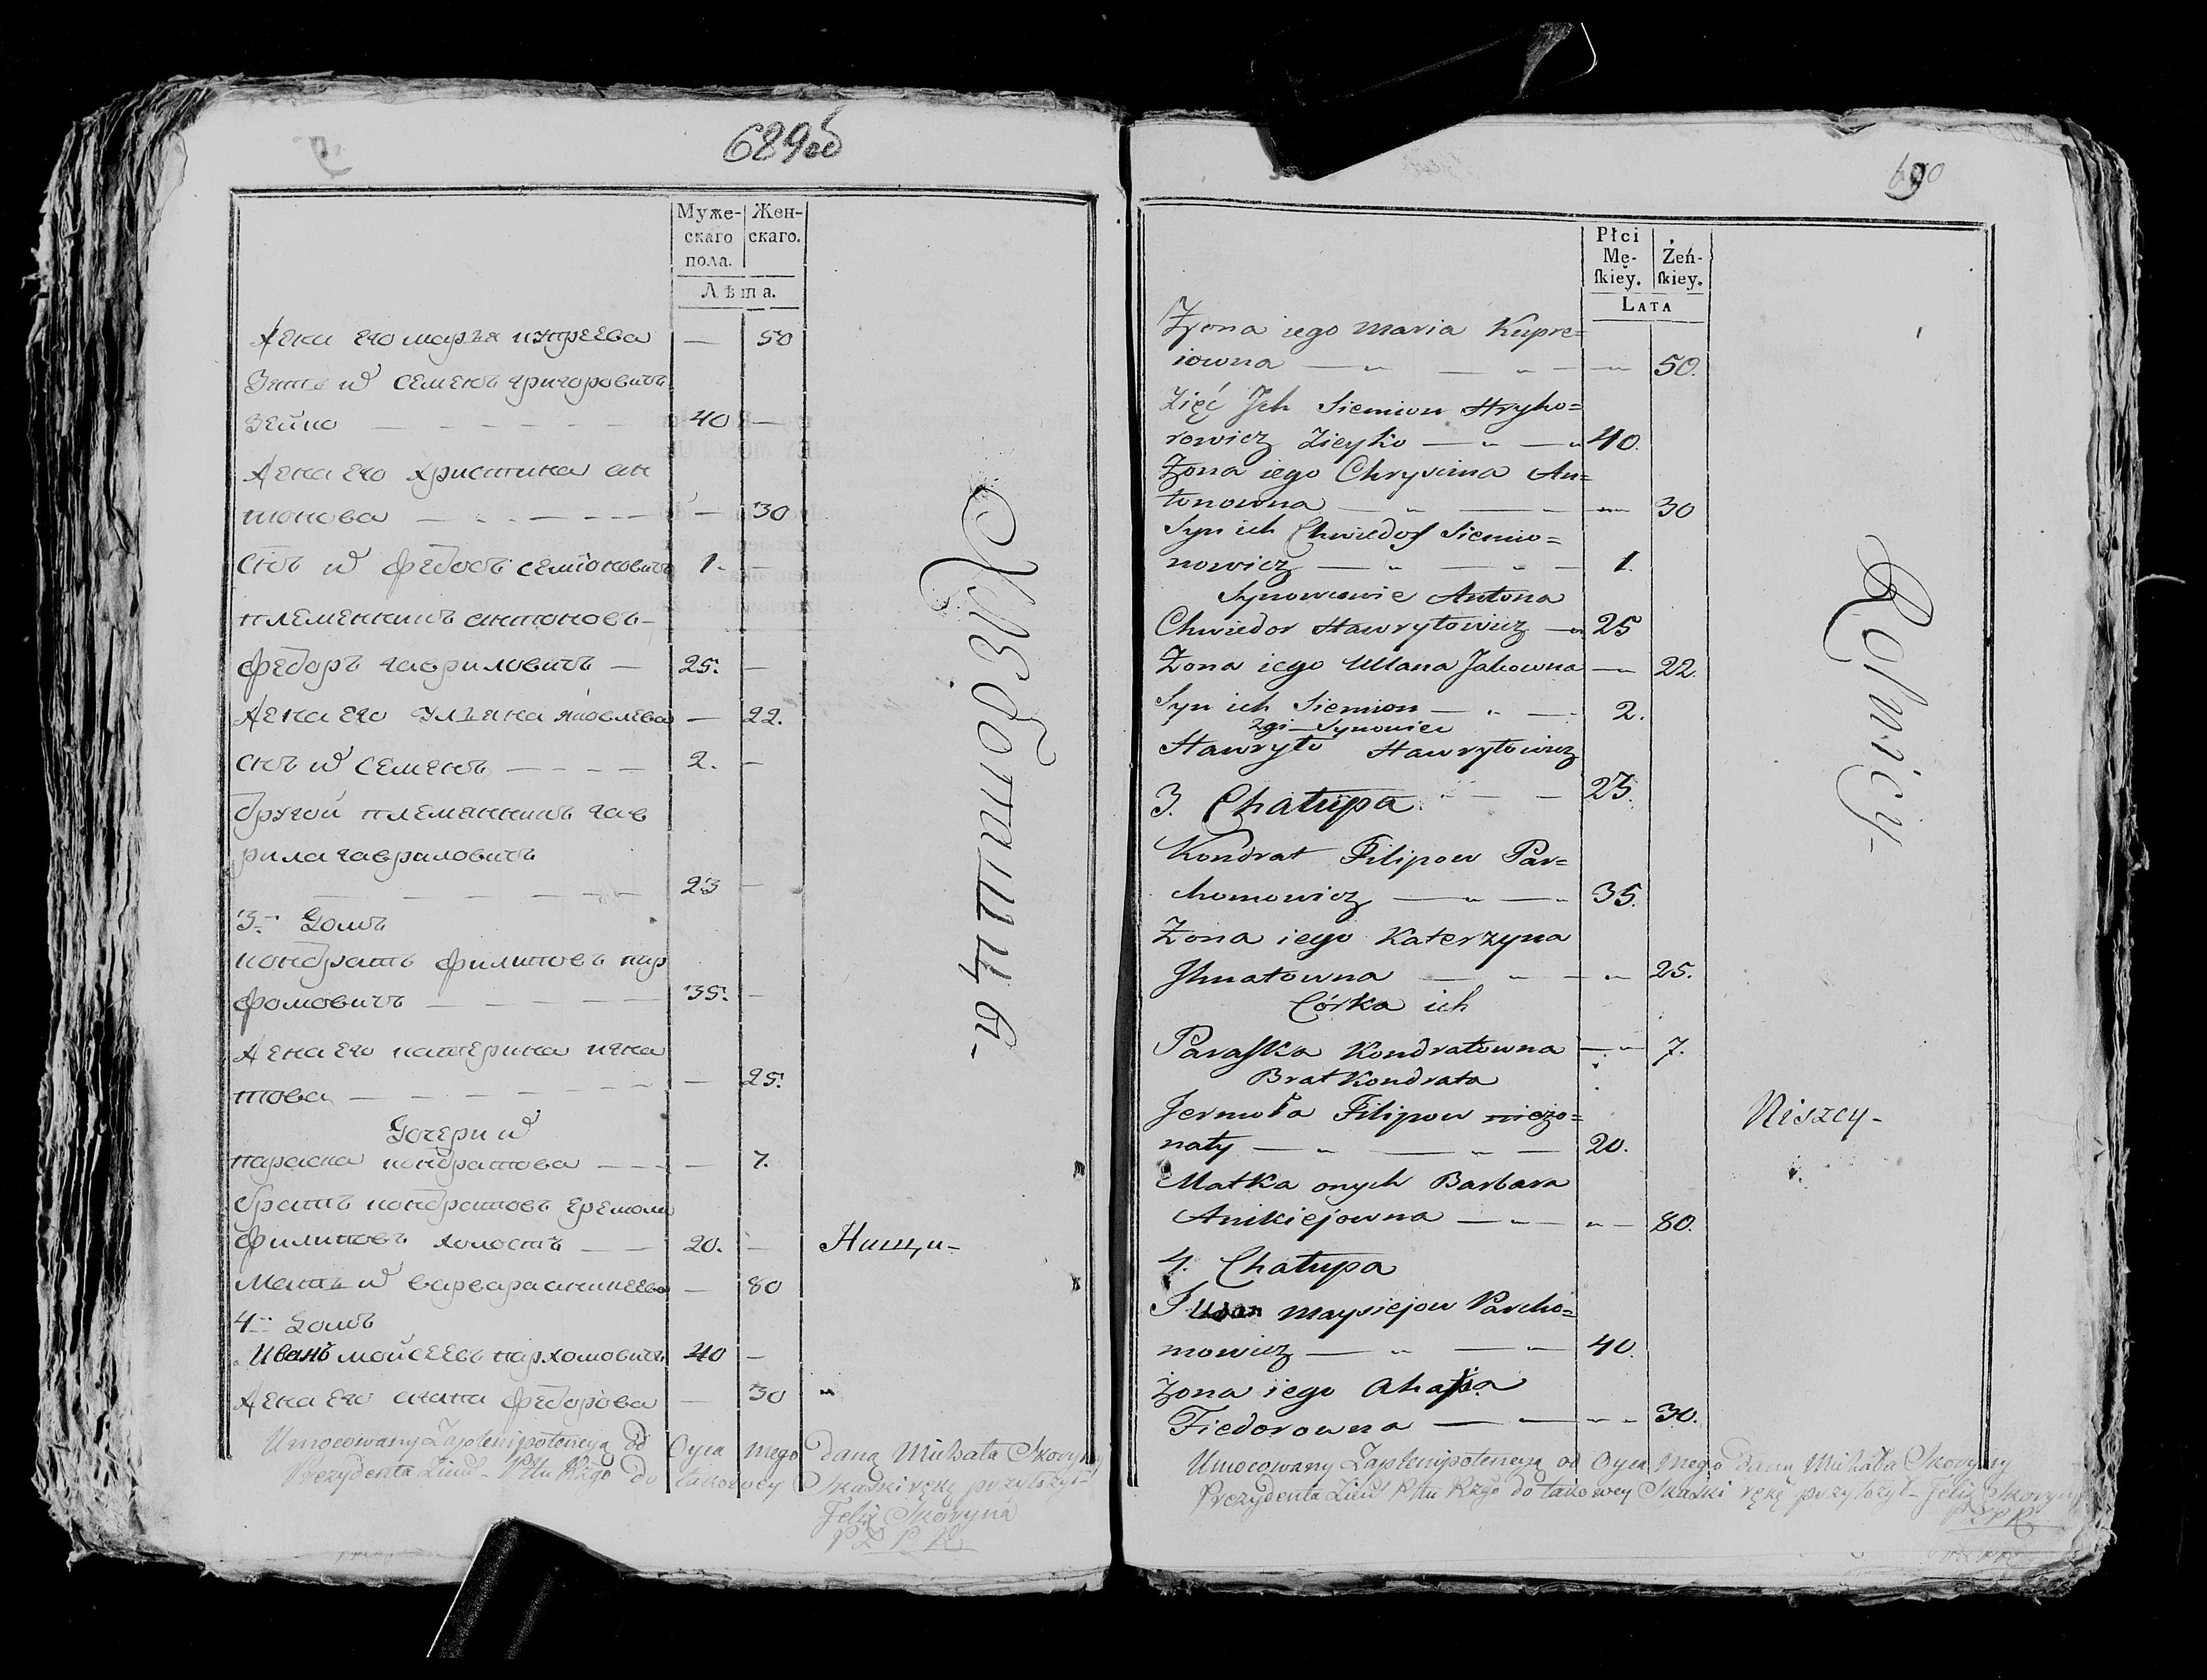 689об
Муже-
скаго
пола.
Жен-
скаго.
Лѣта.
Жена его марья купреева — 50
Зять их семенъ григоровичъ
Зейко 40 —
Жена его христина ан
тонова — 30
Снъ их федосъ семіоновичъ 1. —
племенники антоновъ —
федоръ гавриловичъ — 25. —
Жена его ульяна яковлева — 22.
снъ их семенъ 2. —
другой племянникъ гав
рила гавриловичъ
23 —
3. Домъ
кондратъ филиповъ пар
фомовичъ 35. —
Жена его катерина игна
това — 25.
Дочери их
параска кондратова — 7.
братъ кондратовъ еремола
филиповъ холостъ 20. —
Мать их варвара аникеева — 80
4. Домъ
Иванъ мойсеевъ пархомовичъ 40 —
Жена его агапа федорова — 30
Хлѣбопашцы
Нищи-
Umocowany Zaplenipotencyą od Oyca mego daną Michała Skoryny
Prezydenta Ziem- Pttu Rzgo do takowey Skaski rękę przyłożył-
Felix Skoryna
P Z P R
690
Płci
Mę-
skiey.
Żeń-
skiey.
LATA
Żona iego Maria Kupre=
iowna 50.
Zięć Ich Siemion Hryho=
rowicz Zieyko 40.
Żona iego Chrystina An=
tonowna 30
Syn ich Chwiedos Siemio=
nowicz 1.
Synowcowie Antona
Chwiedor Hawryłowicz 25
Żona iego Ullana Jakowna 22.
Syn ich Siemion 2.
2gi - Synowiec
Hawryło Hawryłowicz
23.
3. Chałupa
Kondrat Filipow Par=
chomowicz 35.
Żona iego Katerzyna
Ihnatowna 25.
Córka ich
Paraska Kondratowna 7.
Brat Kondrata
Jermoła Filipow niezo=
naty 20.
Matka onych Barbara
Anikiejowna 80.
4. Chałupa
Iwan Maysiejow Parcho=
mowicz 40.
Żona iego Ahapa
Fiedorowna 30.
Rolnicy-
Niszcy-
Umocowany Zaplenipotencyą od Oyca mego daną Michała Skoryny
Prezydenta Ziem Pttu Rzgo do takowey Skaski rękę przyłożył- Felix Skoryna
P Z P R